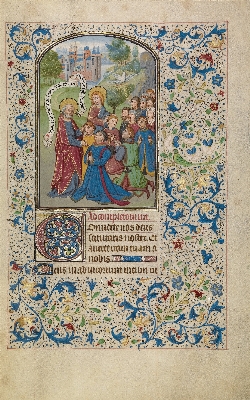 Ad completorium.
Onuerte nos deus
salutaris noster. Et
auerte iram tuam a
nobis.
Deus in adiutorium meum in